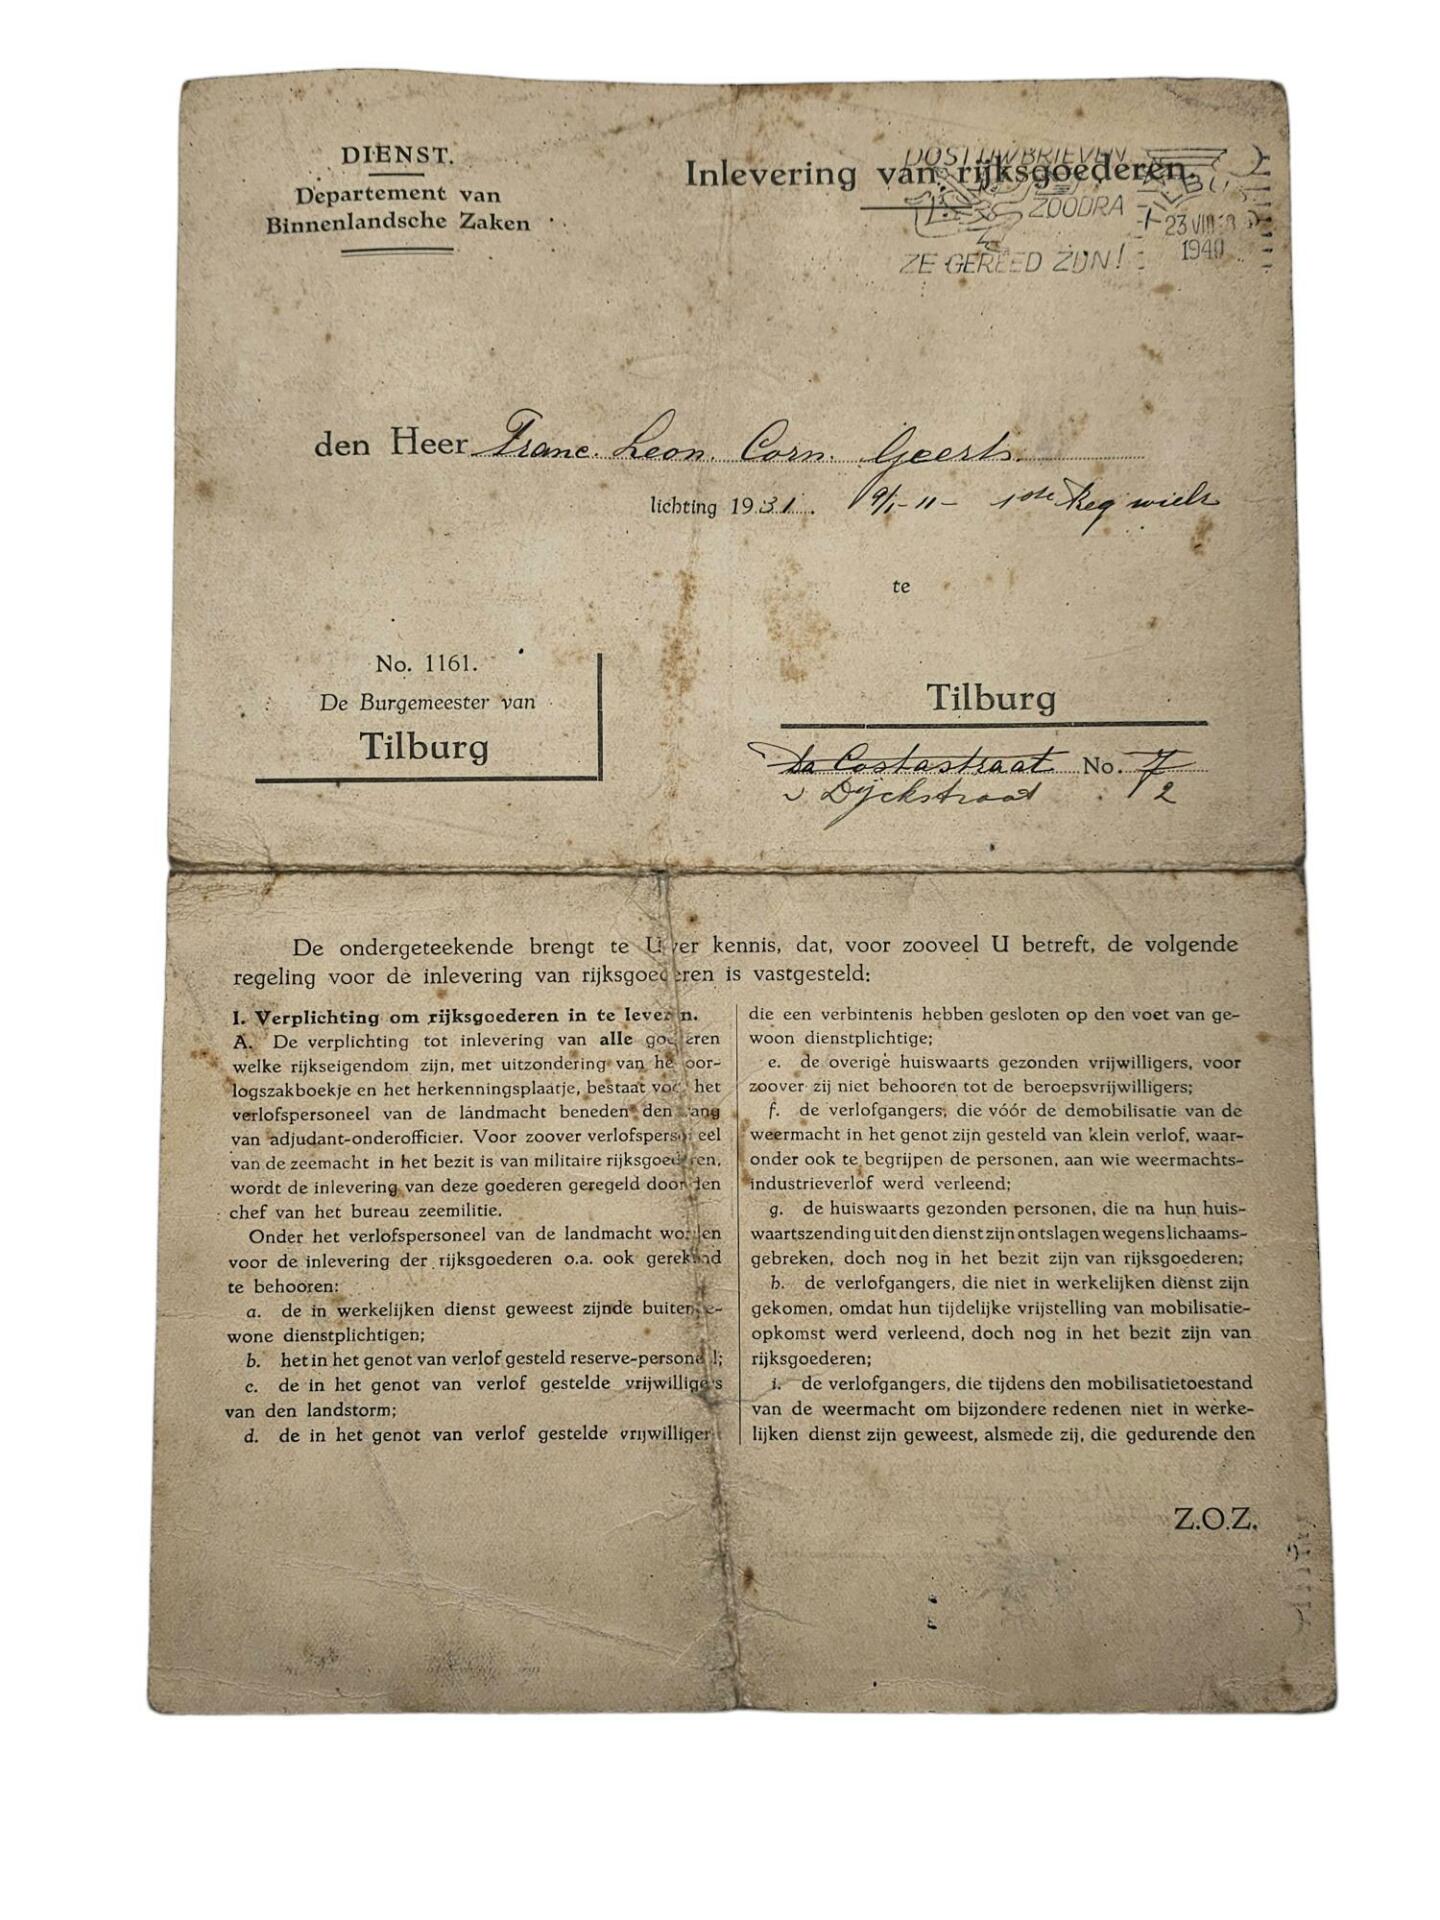 DIENST.
Departement van
Binnenlandsche Zaken
Inlevering van rijksgoederen.
POST UW BRIEVEN
ZOODRA
ZE GEREED ZIJN!
23 VIII
1940
den Heer Franc. Leon. Corn. Geerts.
lichting 1931. 19/1-11- 1ste Reg wielr
te
No. 1161.
De Burgemeester van
Tilburg
Tilburg
Da Costastraat No. 7
v Dyckstraat 72
De ondergeteekende brengt te Uwer kennis, dat, voor zooveel U betreft, de volgende
regeling voor de inlevering van rijksgoederen is vastgesteld:
I. Verplichting om rijksgoederen in te leveren.
A. De verplichting tot inlevering van alle goederen
welke rijkseigendom zijn, met uitzondering van het oor-
logszakboekje en het herkenningsplaatje, bestaat voor het
verlofspersoneel van de landmacht beneden den rang
van adjudant-onderofficier. Voor zoover verlofspersoneel
van de zeemacht in het bezit is van militaire rijksgoederen,
wordt de inlevering van deze goederen geregeld door den
chef van het bureau zeemilitie.
Onder het verlofspersoneel van de landmacht worden
voor de inlevering der rijksgoederen o.a. ook gerekend
te behooren:
a. de in werkelijken dienst geweest zijnde buitenge-
wone dienstplichtigen;
b. het in het genot van verlof gesteld reserve-personeel;
c. de in het genot van verlof gestelde vrijwilligers
van den landstorm;
d. de in het genot van verlof gestelde vrijwilligers
die een verbintenis hebben gesloten op den voet van ge-
woon dienstplichtige;
e. de overige huiswaarts gezonden vrijwilligers, voor
zoover zij niet behooren tot de beroepsvrijwilligers;
f. de verlofgangers, die vóór de demobilisatie van de
weermacht in het genot zijn gesteld van klein verlof, waar-
onder ook te begrijpen de personen, aan wie weermachts-
industrieverlof werd verleend;
g. de huiswaarts gezonden personen, die na hun huis-
waartszending uit den dienst zijn ontslagen wegens lichaams-
gebreken, doch nog in het bezit zijn van rijksgoederen;
h. de verlofgangers, die niet in werkelijken dienst zijn
gekomen, omdat hun tijdelijke vrijstelling van mobilisatie-
opkomst werd verleend, doch nog in het bezit zijn van
rijksgoederen;
i. de verlofgangers, die tijdens den mobilisatietoestand
van de weermacht om bijzondere redenen niet in werke-
lijken dienst zijn geweest, alsmede zij, die gedurende den
Z.O.Z.